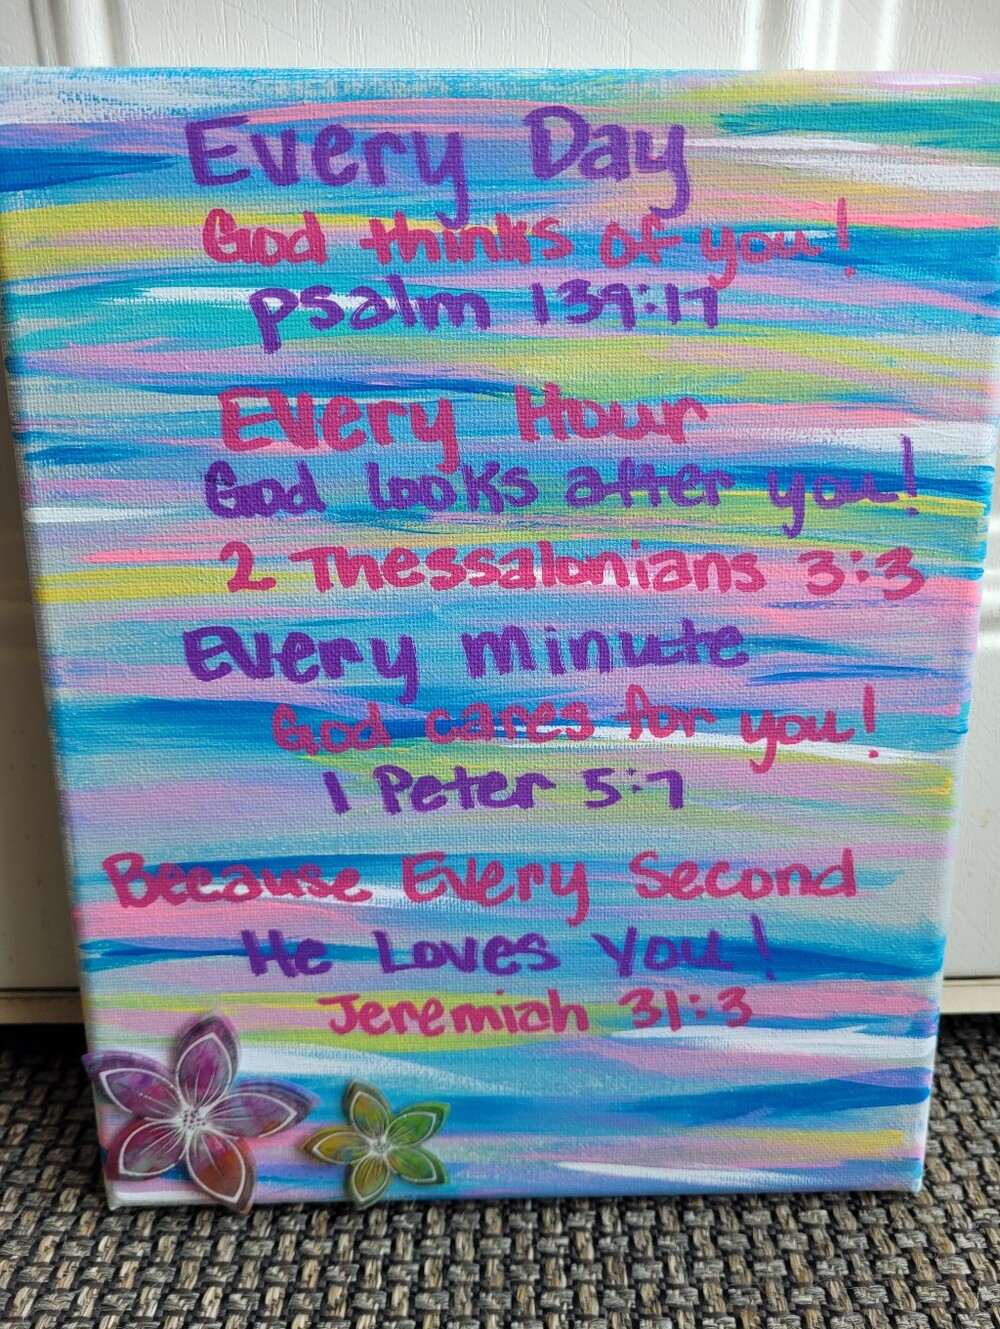 Every Day
God thinks of you!
Psalm 139:17
Every Hour
God looks after you!
2 Thessalonians 3:3
Every minute
God cares for you!
1 Peter 5:7
Because Every Second
He Loves You!
Jeremiah 31:3